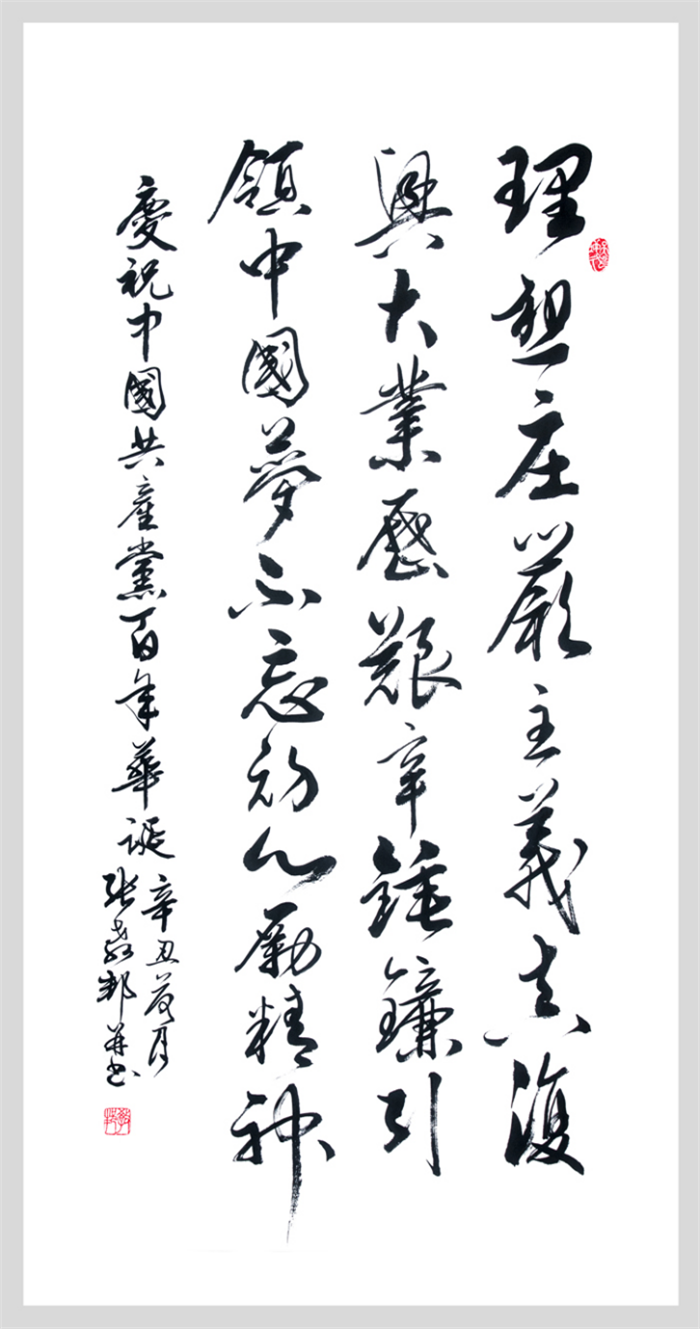 理想庄嚴主義真復
興大業歷艱辛錘鐮引
領中國夢不忘初心勵精神
慶祝中國共產黨百年華誕
辛丑荷月
張邦并書